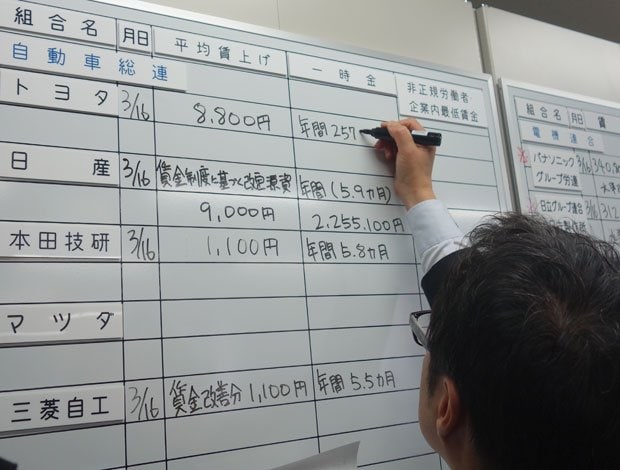 組合名 月日 平均賃上げ 一時金 非正規労働者
企業内最低賃金
自動車総連
トヨタ 3/16 8,800円 年間257
日産 3/16 賃金制度に基づく改定原資 年間(5.9カ月)
9,000円 2,255,100円
本田技研 3/16 1,100円 年間5.8カ月
マツダ
三菱自工 3/16 賃金改善分1,100円 年間5.5カ月
組合名 月日 賃
電機連合
パナソニック 3/16
グループ労連
日立グループ連合 3/16